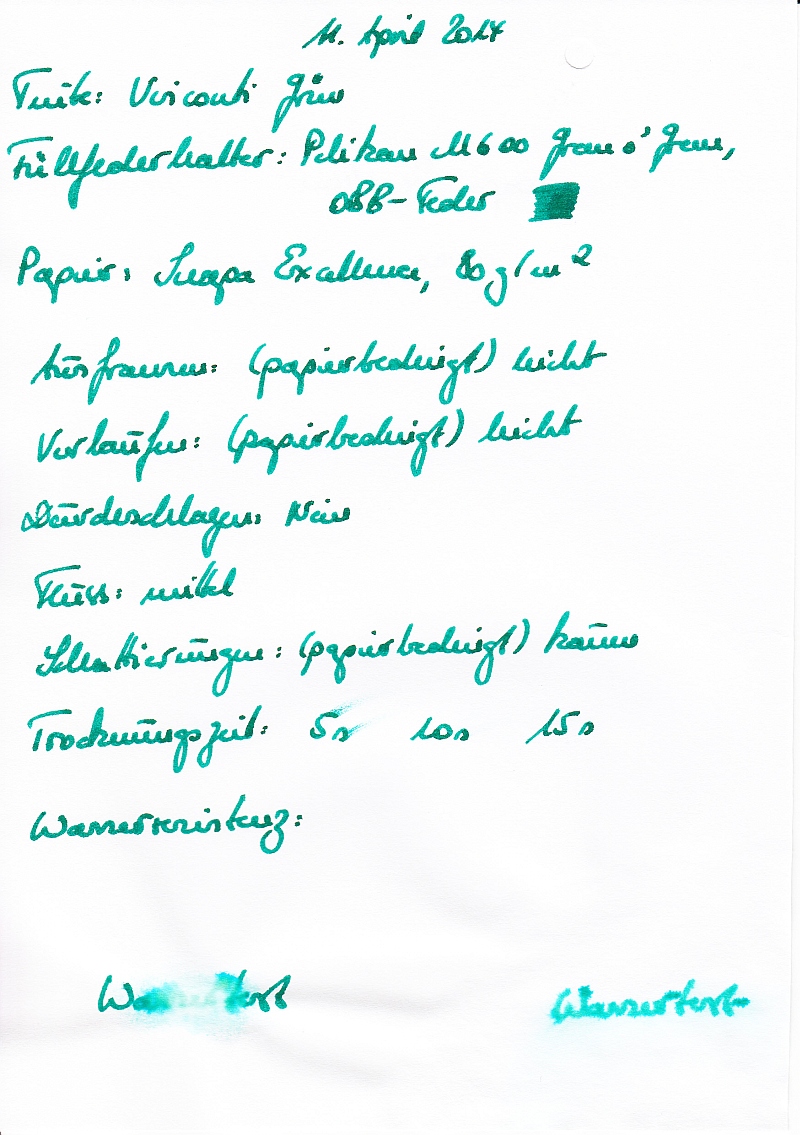 11. April 2014
Tinte: Visconti Grün
Füllfederhalter: Pelikan M600 Green o' Green,
OBB-Feder
Papier: Inapa Excellence, 80 g/m²
Ausfransen: (papierbedingt) leicht
Verlaufen: (papierbedingt) leicht
Durchschlagen: Nein
Fluss: mittel
Schattierungen: (papierbedingt) kaum
Trocknungszeit: 5s 10s 15s
Wasserresistenz:
Wassertest Wassertest